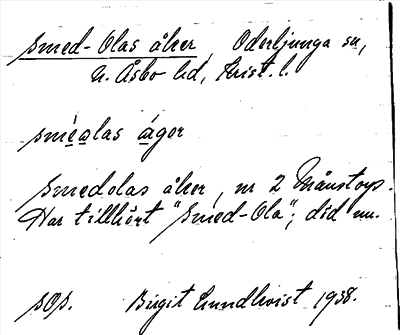 Smed-Olas åker, Oderljunga sn,
N. Åsbo hd, Krist. l.
smèo̱las á̱gər
Smedolas åker, nr 2 Månstorp.
Har tillhört "Smed-Ola"; död nu.
sos. Birgit Lundkvist 1938.